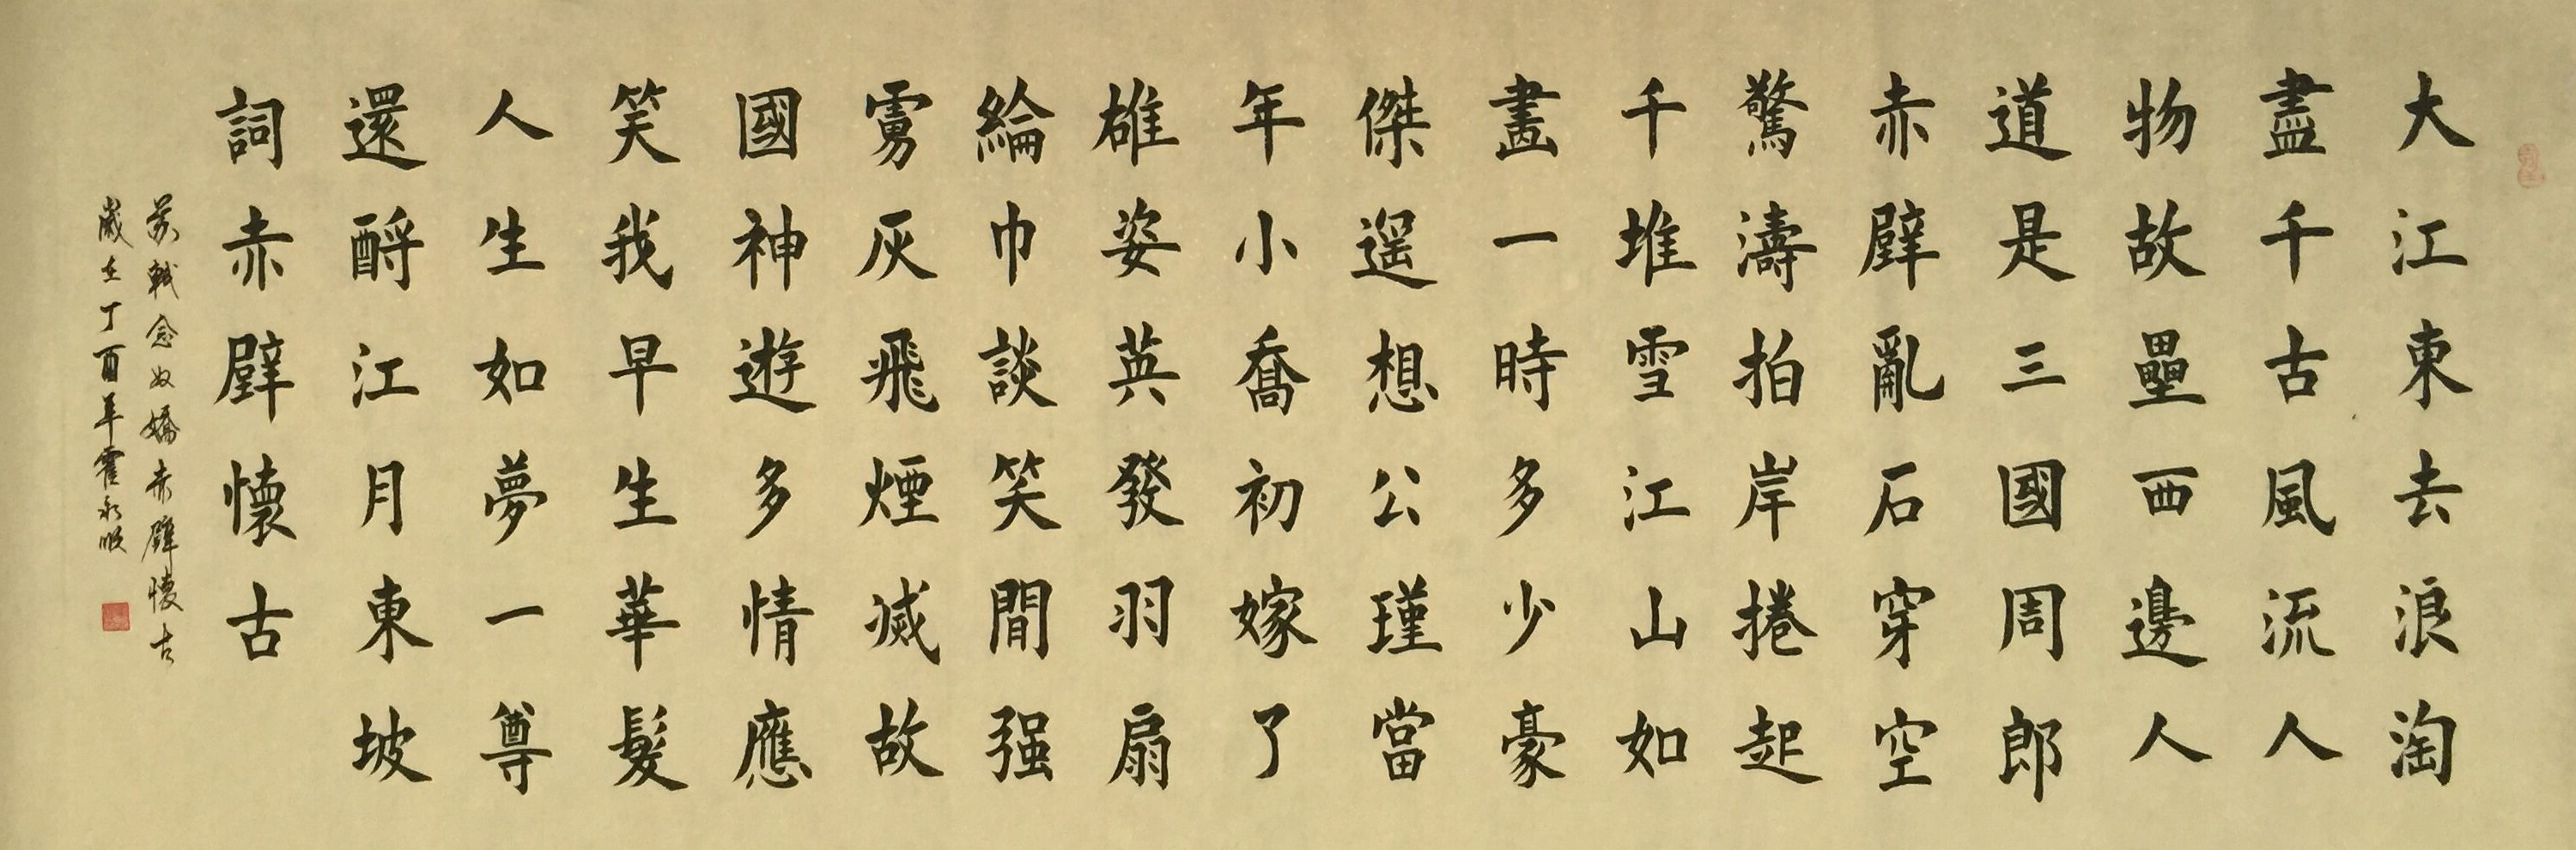 大江東去浪淘
盡千古風流人
物故壘西邊人
道是三國周郎
赤壁亂石穿空
驚濤拍岸捲起
千堆雪江山如
畫一時多少豪
傑遥想公瑾當
年小喬初嫁了
雄姿英發羽扇
綸巾談笑間强
虜灰飛煙滅故
國神遊多情應
笑我早生華髮
人生如夢一尊
還酹江月東坡
詞赤壁懷古
蘇軾念奴嬌赤壁懷古
歲在丁酉年霍永順